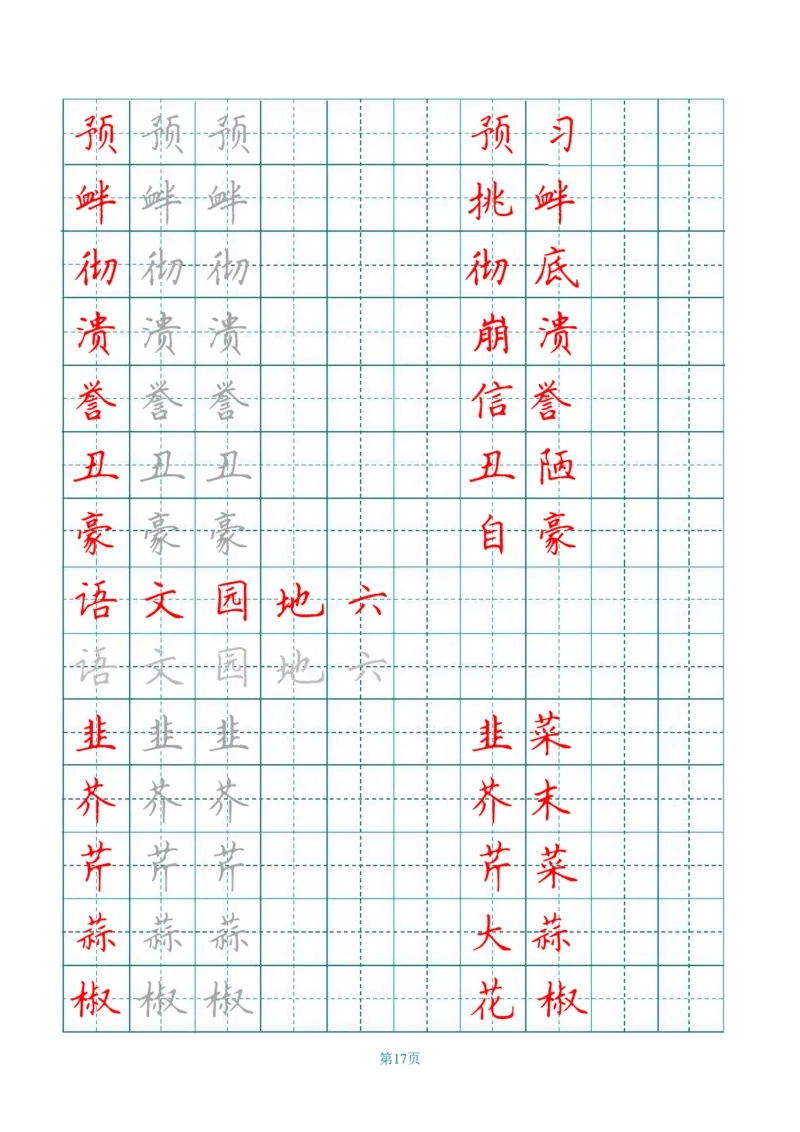 预 预 预 预 习
衅 衅 衅 挑 衅
彻 彻 彻 彻 底
溃 溃 溃 崩 溃
誉 誉 誉 信 誉
丑 丑 丑 丑 陋
豪 豪 豪 自 豪
语 文 园 地 六
语 文 园 地 六
韭 韭 韭 韭 菜
芥 芥 芥 芥 末
芹 芹 芹 芹 菜
蒜 蒜 蒜 大 蒜
椒 椒 椒 花 椒
第17页